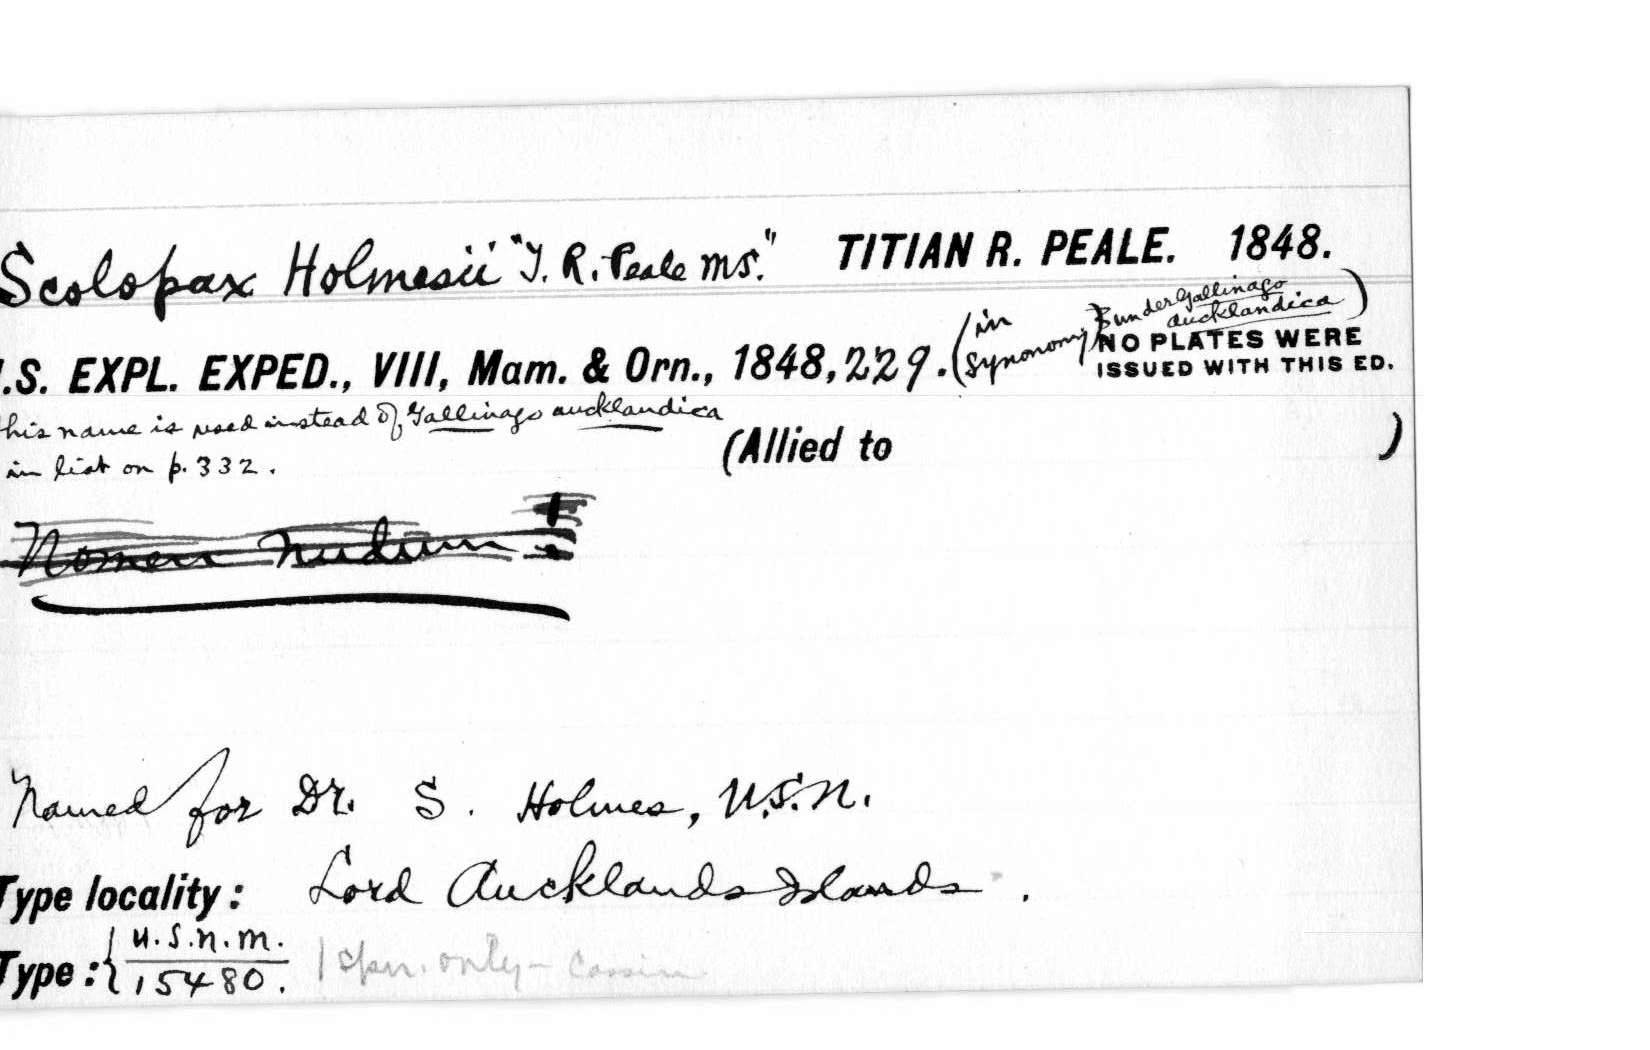 Scolopax Holmesii "T. R. Peale ms." TITIAN R. PEALE. 1848.
.S. EXPL. EXPED., VIII, Mam. & Orn., 1848, 229. (in synonomy) under Gallinago aucklandica)
NO PLATES WERE
ISSUED WITH THIS ED.
his name is used instead of Gallinago aucklandica
in list on p. 332.
(Allied to )
Nomen nudum!
Named for Dr. S. Holmes, U.S.N.
Type locality: Lord Aucklands Islands.
Type: { U.S.N.M.
15480. 1 spm. only - Cassin